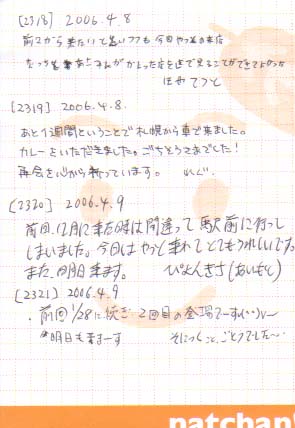 [2318] 2006.4.8
前々から来たいと思いつつも今回やっと来店
なっち
さんが
を近で見ることができてよかった
[2319] 2006.4.8.
あと1週間ということで札幌から車で来ました。
カレーをいただきました。ごちそうさまでした!
再会を心から祈っています。
[2320] 2006.4.9
前回、12月に来た時は間違って駅前に行っ
てしまいました。今日はやっと来れてとてもうれしいです。
また、明日来ます。 ぴよんきち(あいもと)
[2321] 2006.4.9
・前回1/28に続き2回目の登場でーす(^^)v~
明日も来まーす そにっくっと、ごとうでした~
patchan